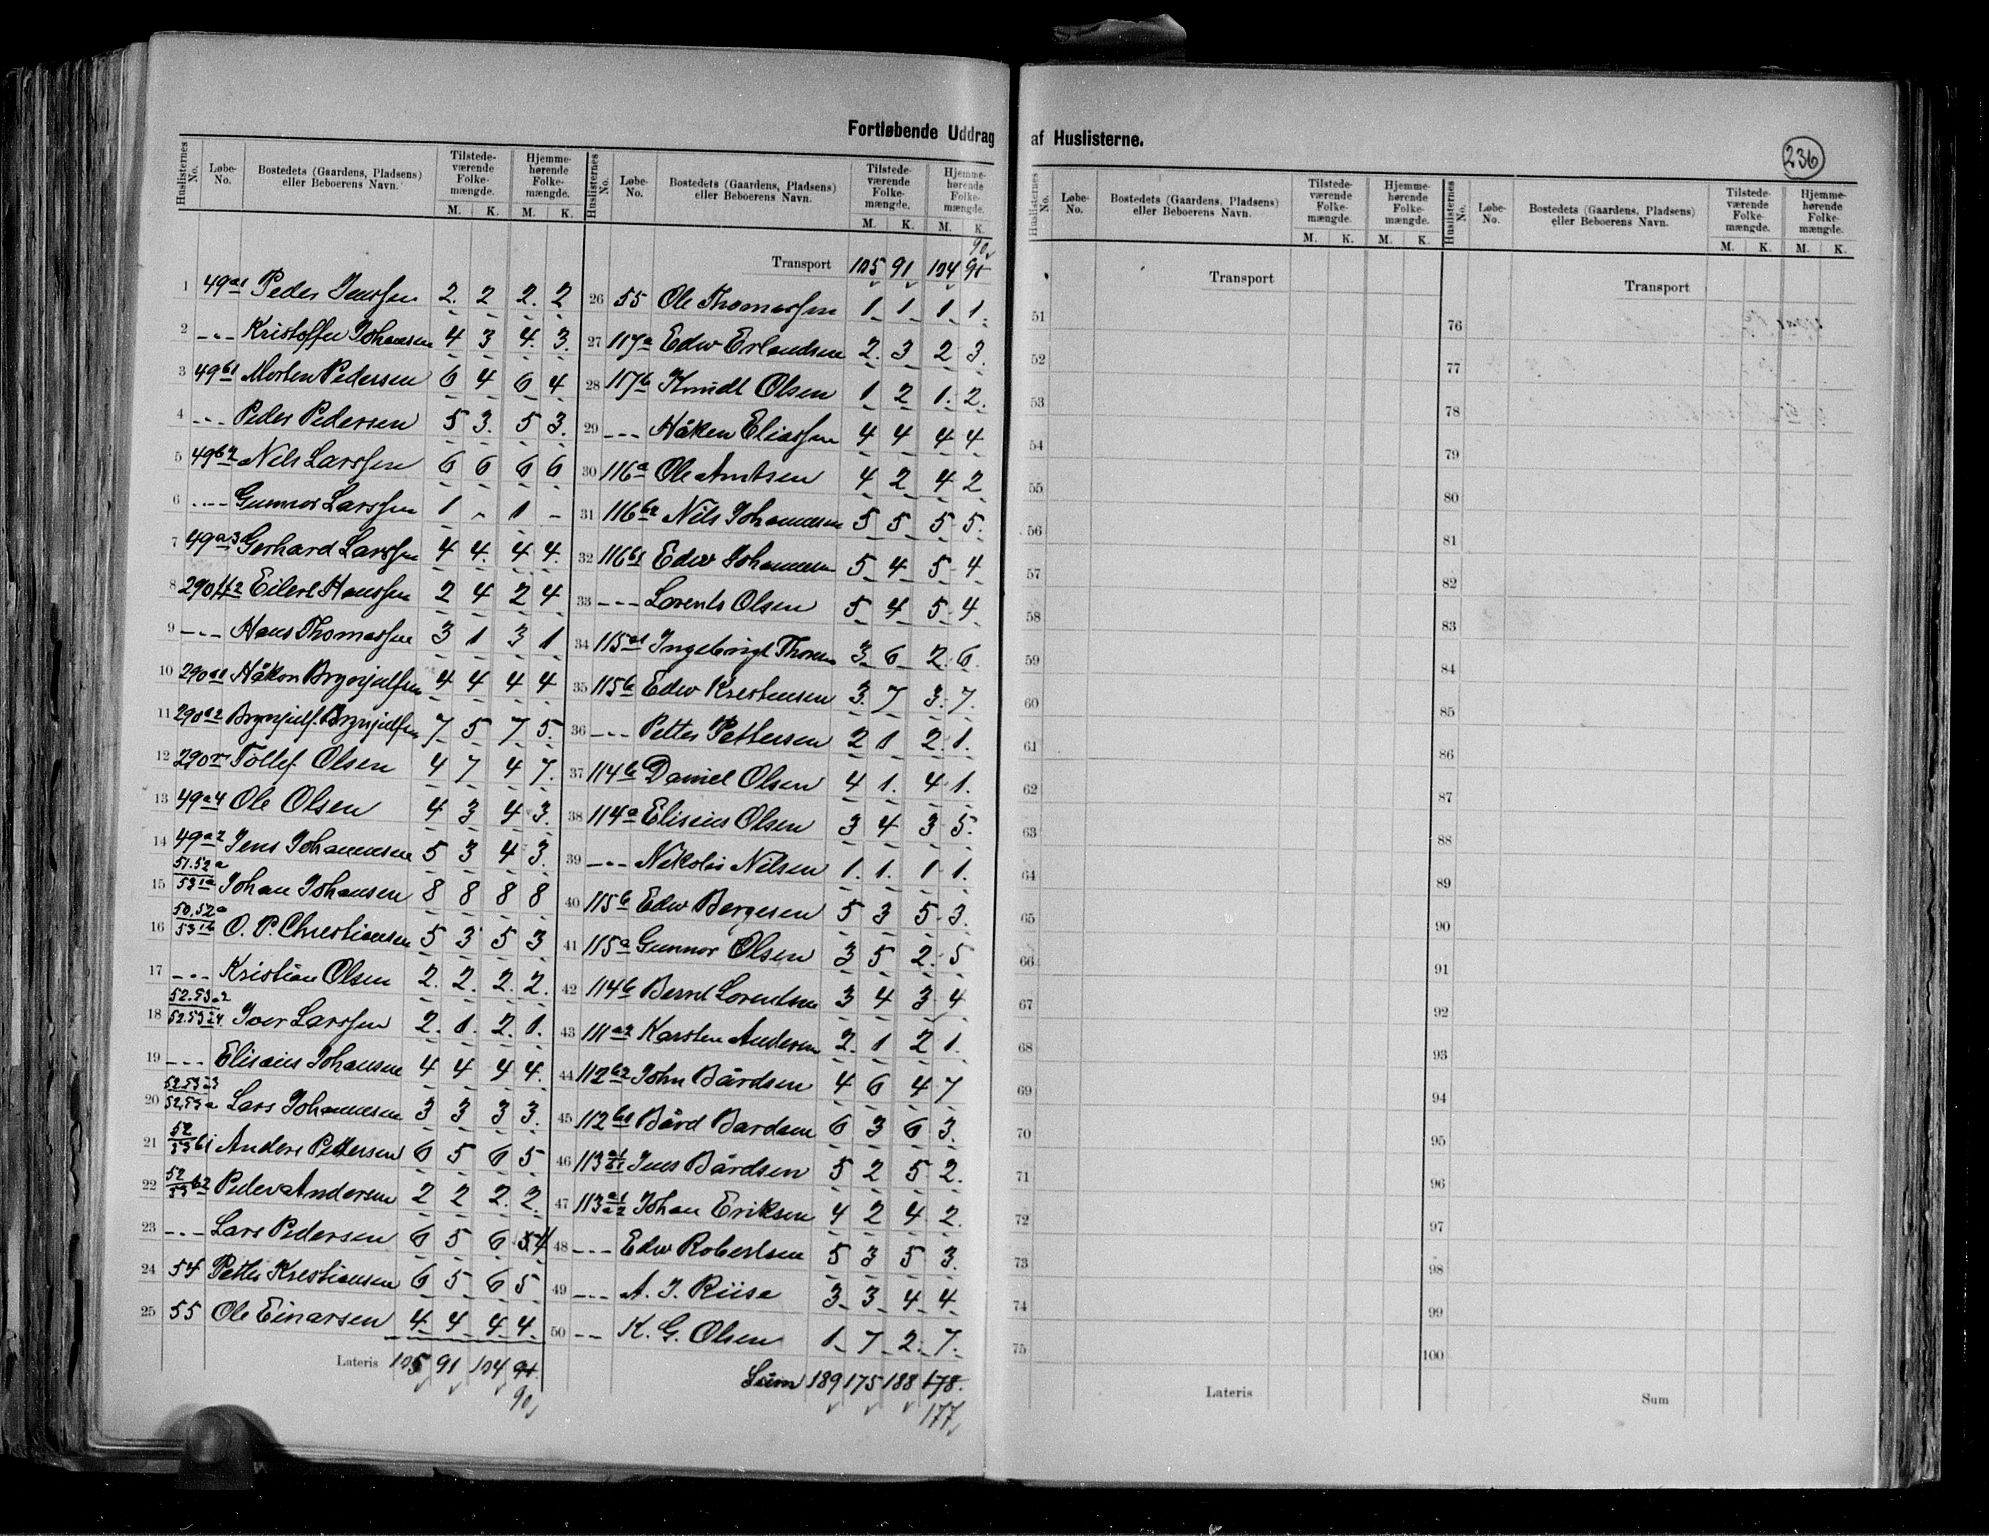 Fortløbende Uddrag af Huslisterne.
236
Huslisternes No. Løbe-No. Bostedets (Gaardens, Pladsens) eller Beboerens Navn. Tilstedeværende Folkemængde. M. K. Hjemmehørende Folkemængde. M. K.
1 49a1 Peder Jenssen 2. 2 2. 2
2 - - - Kristoffer Johansen 4 3 4. 3.
3 49b1 Morten Pedersen 6 4 6 4
4 - - - Peder Pedersen 5 3. 5 3.
5 49b2 Nels Larssen 6 6 6 6
6 - - - Gunnar Larssen 1 - 1 -
7 49a3 Gerhard Larssen 4 4. 4 4.
8 290 Eilert Hanssen 2 4 2 4
9 - - - Hans Thomassen 3 1 3 1
10 290a1 Håkon Brynjulfsen 4 4 4 4
11 290a2 Brynjulf Brynjulfsen 7 5 7 5.
12 290 Tollef Olsen 4 7 4 7.
13 49a4 Ole Olsen 4 3 4 3.
14 49a2 Jens Johannesen 5 3 4 3.
15 51.52a 53 1a Johan Johansen 8 8 8 8
16 50.52a 53 1b O. P. Christiansen 5 3 5 3
17 - - - Kristian Olsen 2. 2. 2. 2.
18 52.53a2 52.53 Iver Larssen 2. 1. 2. 1.
19 - - - Eliseus Johansen 4 4 4 4.
20 52.53 52.53a Lars Johannesen 3 3 3 3.
21 52 53 b1 Anders Pettersen 6 5 6 5
22 52 53 b2 Peder Andersen 2 2 2. 2.
23 - - - Lars Pedersen 6 5 6 5 4
24 54 Petter Kristiansen 6 5 6 5
25 55 Ole Einarsen 4 4 4 4.
Lateris 105 91 104 91
90
90
Transport 105 91 104 91
26 55 Ole Thomassen 1 1 1 1.
27 117a Edw Erlandsen 2. 3 2 3.
28 117b Knudt Olsen 1 2 1. 2.
29 - - - Håken Eliassen 4 4 4 4
30 116a Ole Arntsen 4 2 4 2
31 116b2 Nils Johannesen 5 5 5 5.
32 116b1 Edw Johannesen 5 4 5 4
33 - - - Lorents Olsen 5 4 5 4
34 115a1 Ingebrigt Thorsen 3 6 2. 6.
35 115b Edw Kristensen 3. 7 3. 7.
36 - - - Petter Pettersen 2 1 2. 1.
37 114b Daniel Olsen 4 1. 4 1.
38 114a Eliseus Olsen 3 4 3 5.
39 - - - Nikolai Nilsen 1. 1. 1 1.
40 115b Edw Bergesen 5 3 5 3.
41 115a Gunnar Olsen 3 5 2. 5
42 114b Bernt Lorentsen 3 4 3 4
43 111a2 Karsten Andersen 2. 1 2 1.
44 112b2 John Bårdsen 4 6 4 7
45 112b1 Bård Bardsen 6 3 6 3.
46 113 Jens Bårdsen 5 2 5 2.
47 113a1 a2 Johan Eriksen 4 2 4 2.
48 - - - Edw Robertsen 5 3 5 3.
49 - - - A. J. Riise 3 3 4 4
50 - - K. G. Olsen 1 7 2. 7.
Sum 189 175 188 178.
177
Huslisternes No. Løbe-No. Bostedets (Gaardens, Pladsens) eller Beboerens Navn. Tilstedeværende Folkemængde. M. K. Hjemmehørende Folkemængde. M. K.
Transport
51
52
53
54
55
56
57
58
59
60
61
62
63
64
65
66
67
68
69
70
71
72
73
74
75
Lateris
Transport
76
77
78
79
80
81
82
83
84
85
86
87
88
89
90
91
92
93
94
95
96
97
98
99
100
Sum